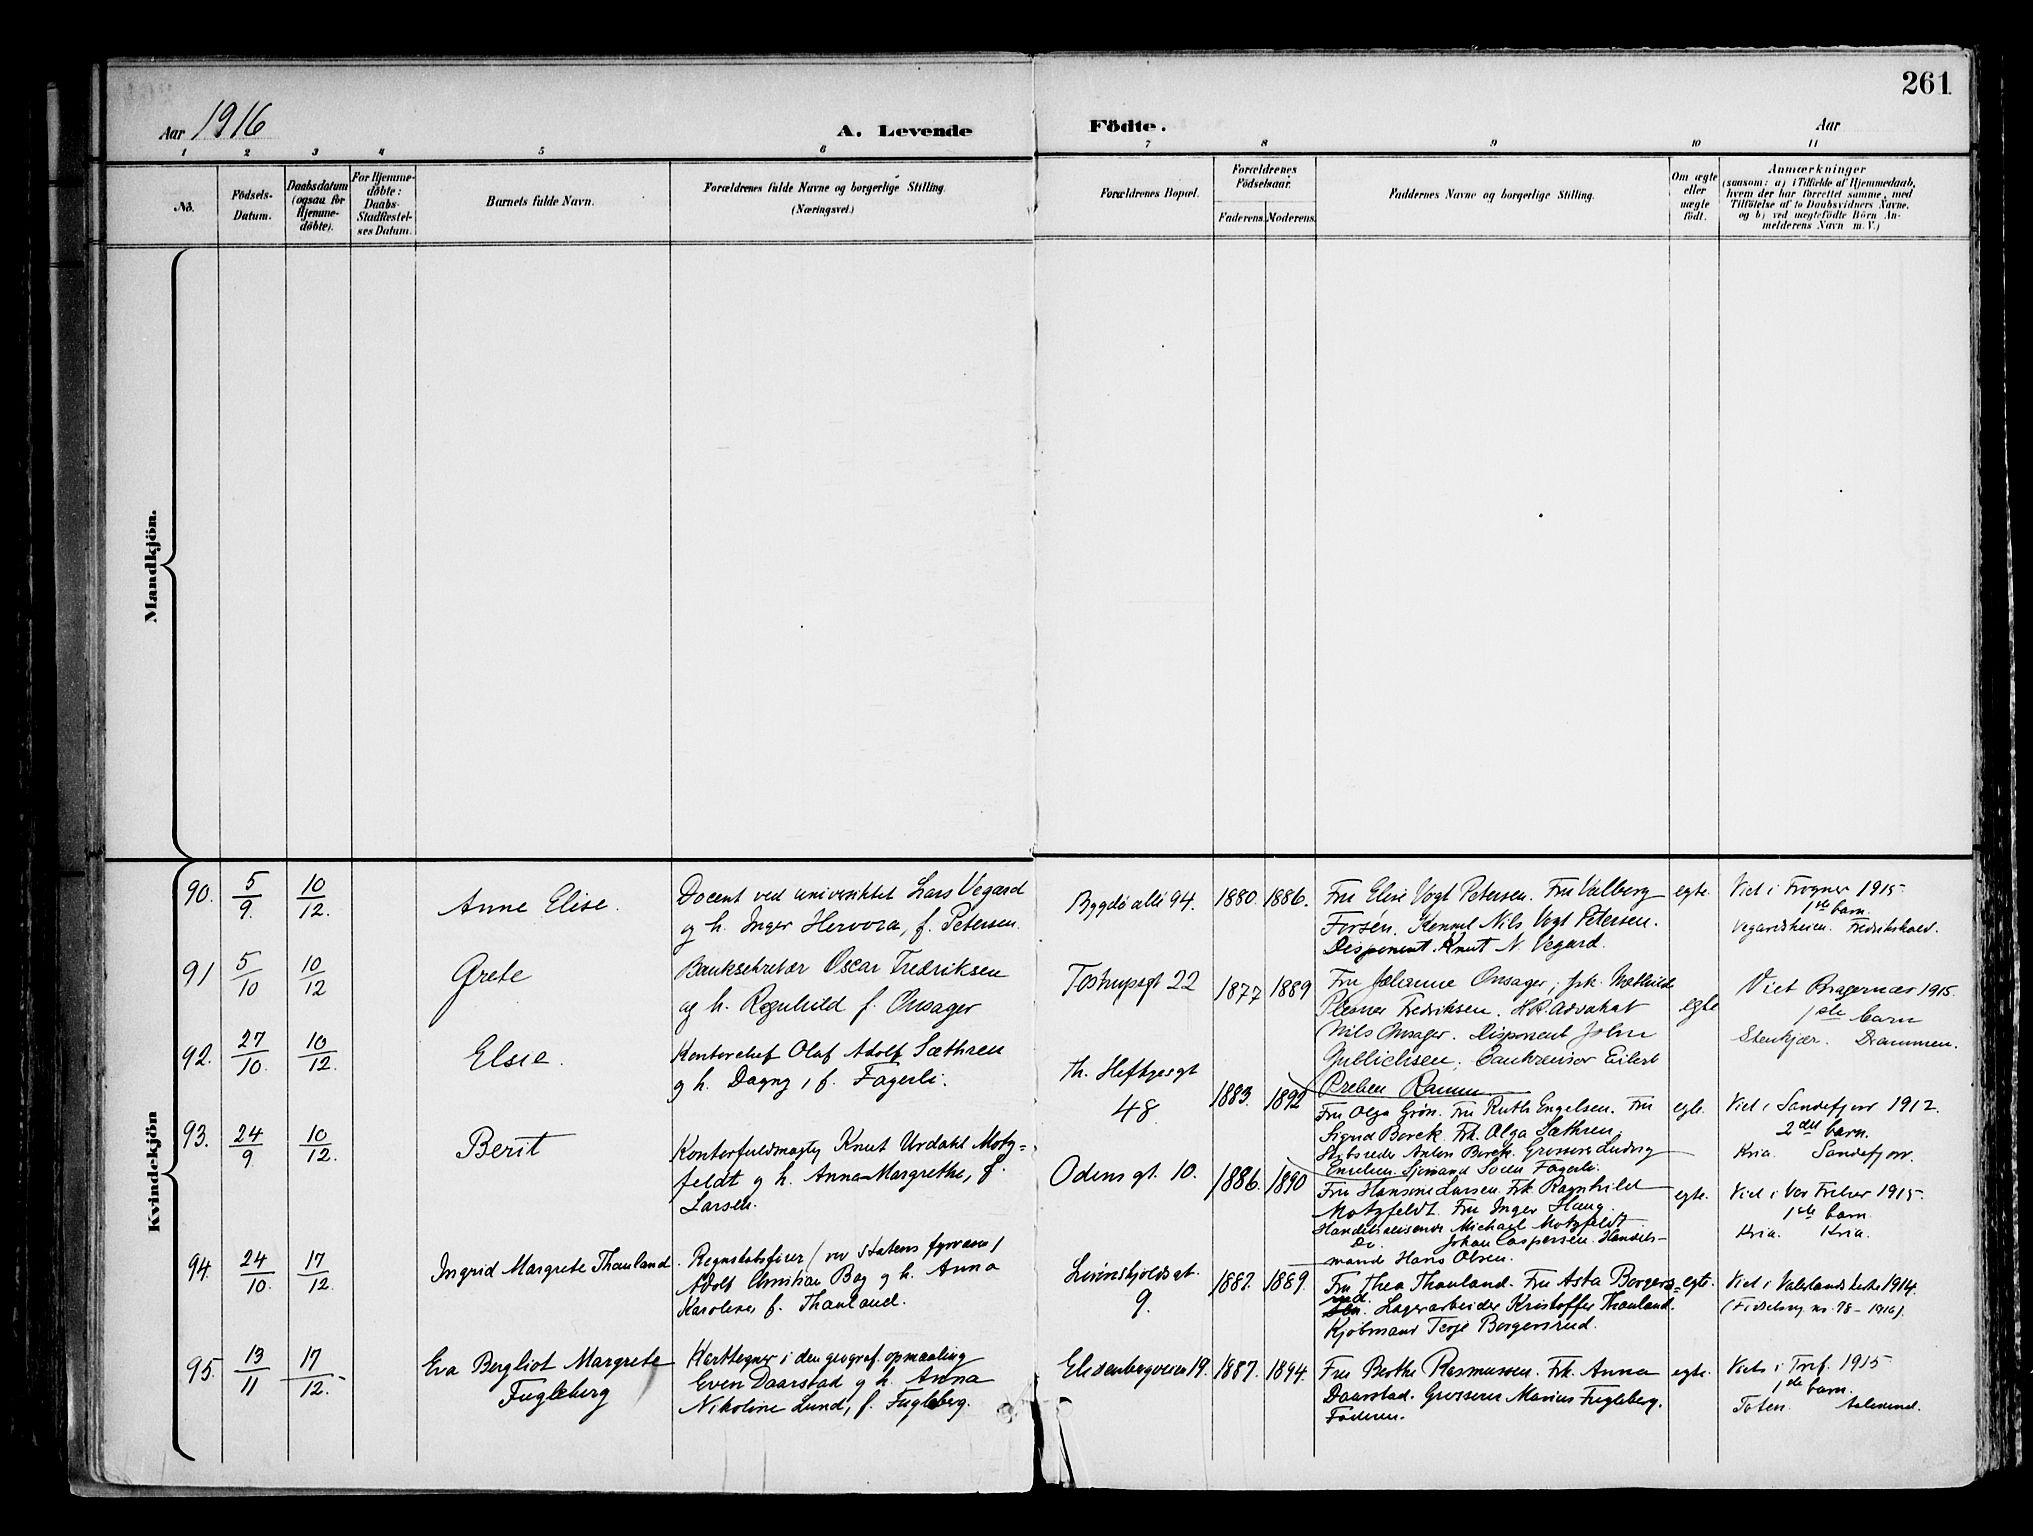 261
Aar 1916
A. Levende
Födte.
Aar
1 2 3 4 5 6 7 8 9 10 11
No.
Födsels-
Datum.
Daabsdatum
(ogsaa for
Hjemme-
døbte).
For Hjemme-
døbte:
Daabs-
Stadfæstel-
ses Datum.
Barnets fulde Navn.
Forældrenes fulde Navne og borgerlige Stilling.
(Næringsvei.)
Forældrenes Bopæl.
Forældrenes
Födselsaar.
Faderens. Moderens.
Faddernes Navne og borgerlige Stilling.
Om ægte
eller
uægte
födt.
Anmærkninger
(saasom: a) i Tilfælde af Hjemmedaab,
hvem der har forrettet samme, med
Tilföielse af to Daabsvidners Navne,
og b) ved uægtefödte Börn An-
melderens Navn m.V.)
Mandkjön.
Kvindekjön
90. 5/9. 10/12. Anne Elise.
Docent ved universitetet Lars Vegard
og h. Inger Hervora, f. Petersen.
Bygdø allé 94. 1880. 1886.
Fru Elise Vogt Petersen. Fru Valborg
Forsén. Nils Vogt Petersen.
Disponent. Knut N Vegard.
egte.
Viet i Frogner 1915
1ste barn.
Vegardsheien. Fredrikshald.
91 5/10 10/12 Grete
Banksekretær Oscar Fredriksen
og h. Ragnhild f. Onsager
Tostrupsgt 22 1877 1889
Fru Johanne Onsager; frk. Mathilde
Plesner Fredriksen. H.R. Advokat
Nils Onsager. Disponent John
Eilert
Preben Ramm
egte
Viet Bragernær 1915.
1ste barn
Stenkjær. Drammen.
92. 27/10. 10/12. Elsie.
Kontorchef Olaf Adolf Sæthren
g h. Dagny, f. Fagerli.
Th. Heftyesgt
48 1883. 1892
Fru Olga Grön. Fru Ruth Engelsen. Fru
Sigrid Borck. Frk. Olga Sæthren.
Skibsreder Anton Borck. Grosserer Ludvig
Engelsen. Sjömand Sören Fagerli.
egte.
Viet i Sandefjord 1912.
2det barn.
Kria. Sandefjord.
93. 24/9. 10/12. Berit
Kontorfuldmægtig Knut Urdahl Motz-
feldt g h. Anna Margrethe, f.
Larsen.
Odins gt. 10. 1886. 1890
Fru Hansine Larsen. Frk. Ragnhild
Motzfeldt. Fru Inger Haug.
Handelsreisende Michael Motzfeldt
Do. Johan Caspersen. Handels-
mand Hans Olsen.
egte.
Viet i Vor Frelser 1915.
1ste barn
Kria. Kria.
94. 24/10. 17/12. Ingrid Margrete Thanland.
Regnskabsfører (ved statens fyrvæsen)
Adolf Christian Bog g h. Anna
Karoline f. Thanland.
Løvenskjoldsgt.
9. 1887. 1889.
Fru Thea Thanland. Fru Asta Borgers-
rud. Lagerarbeider Kristoffer Thanland.
Kjöbmand Terje Borgersrud.
egte.
Viet i Vaalerland 1914.
(Födselsreg nr. 78 - 1916).
95. 13/11 17/12. Eva Bergliot Margrete
Fugleberg
Karttegner i den geograf. opmaaling
Even Daarstad g h. Anna
Nikoline Lund, f. Fugleberg.
Elisenbergveien 19. 1887. 1894.
Fru Berthe Rasmussen. Frk. Anna
Daarstad. Grosserer Marius Fugleberg.
Faderen.
egte.
Viet i Tref. 1915
1ste barn.
Toten. Aalesund.